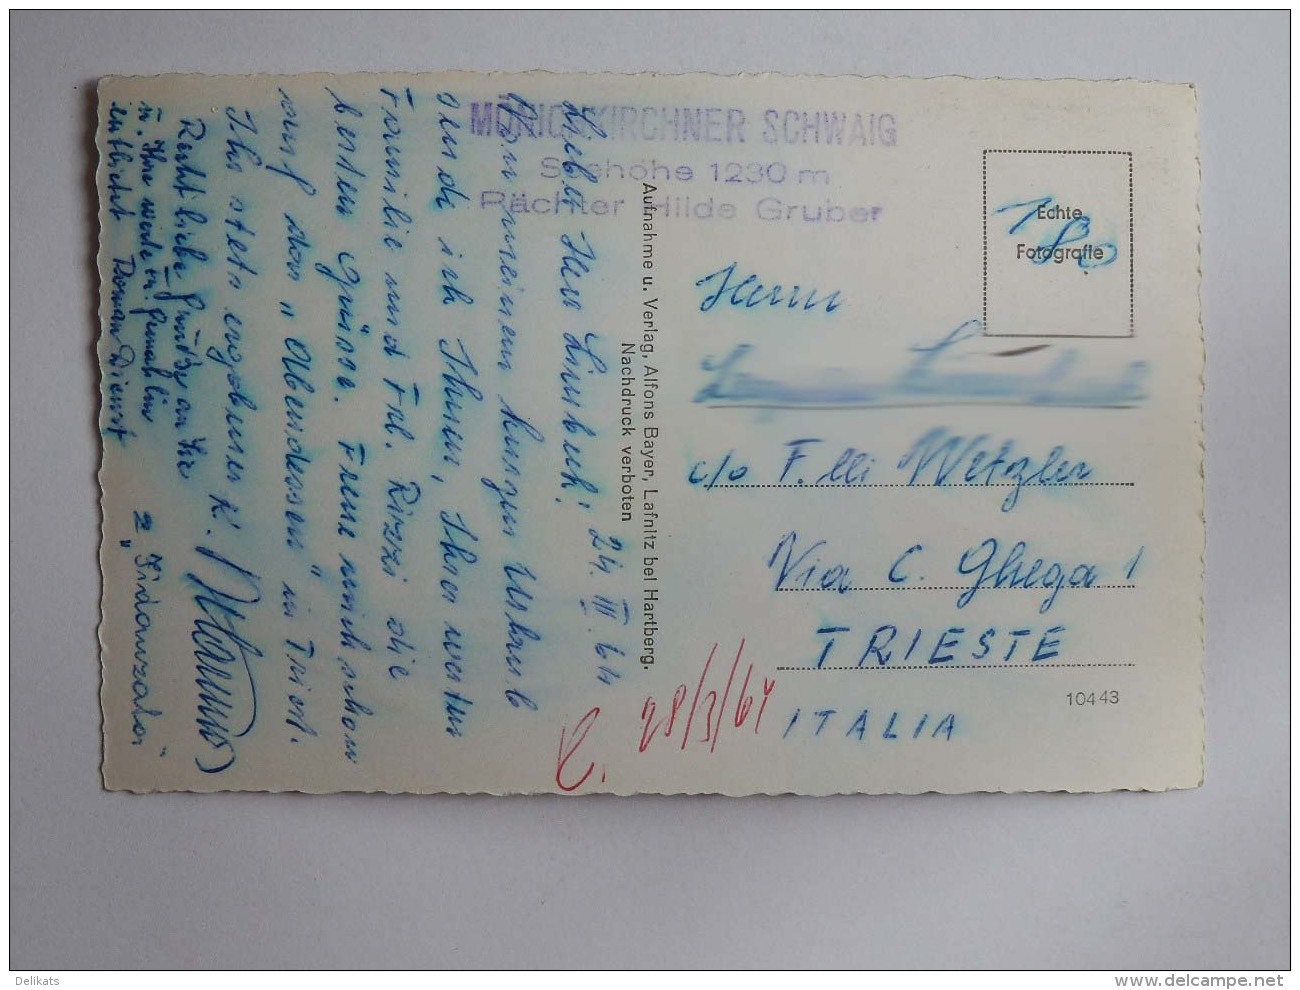 MÖNICHKIRCHNER SCHWAIG
Seehöhe 1230 m
Pächter Hilde Gruber
Echte
Fotografie
Herrn
c/o F.lli Wetzler
Via C. Ghega 1
TRIESTE
ITALIA
10443
28/3/64
Aufnahme u. Verlag, Alfons Bayer, Lafnitz bei Hartberg.
Nachdruck verboten
24. III. 64
Lieber Herr
Von meinem kurzen Urlaub
sende ich Ihnen, Ihrer werten
Familie und Frl. Rizzi die
besten Grüsse. Freue mich schon
auf das "Abendessen" in Triest.
Ihr stets ergebener K.
Recht liebe Grüße an Sie
u. Ihre werte Fr. Gemahlin
entbietet
z. "
Delikats
www.delcampe.net